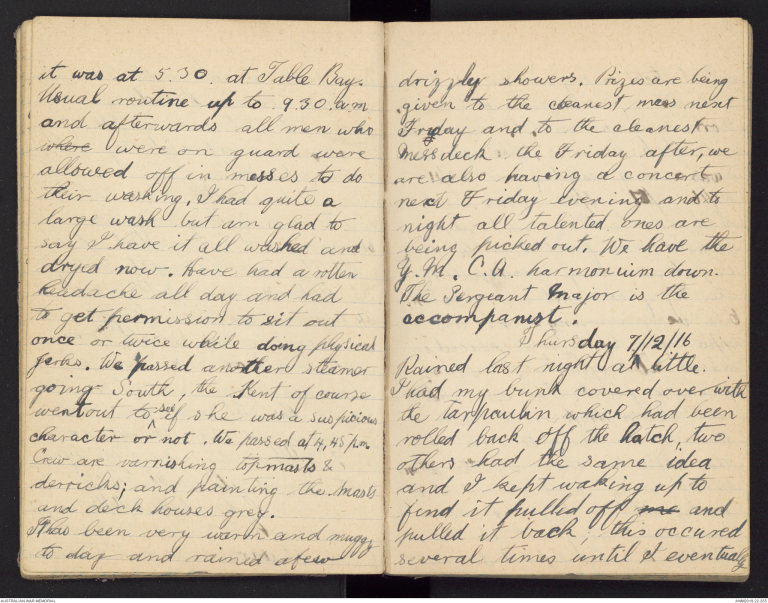 it was at 5.30. at Table Bay.
Usual routine up to 9.30. a.m
and afterwards all men who
where were on guard were
allowed off in messes to do
their washing. I had quite a
large wash but am glad to
say I have it all washed and
dryed now. Have had a rotten
headache all day and had
to get permission to sit out
once or twice while doing physical
jerks. We passed another steamer
going South, the Kent of course
went out to see if she was a suspicious
character or not. We passed at 4.45 p.m.
Crew are varnishing topmasts &
derricks; and painting the masts
and deck houses grey.
It has been very warm and muggy
to day and rained a few
drizzly showers. Prizes are being
given to the cleanest mess next
Friday and to the cleanest
Messdeck the Friday after, we
are also having a concert
next Friday evening and to
night all talented ones are
being picked out. We have the
Y.M.C.A. harmonium down.
The Sergeant Major is the
accompanist.
Thursday 7/12/16
Rained last night a little.
I had my bunk covered over with
the tarpaulin which had been
rolled back off the hatch, two
others had the same idea
and I kept waking up to
find it pulled off me and
pulled it back, this occured
several times until I eventually
AUSTRALIAN WAR MEMORIAL